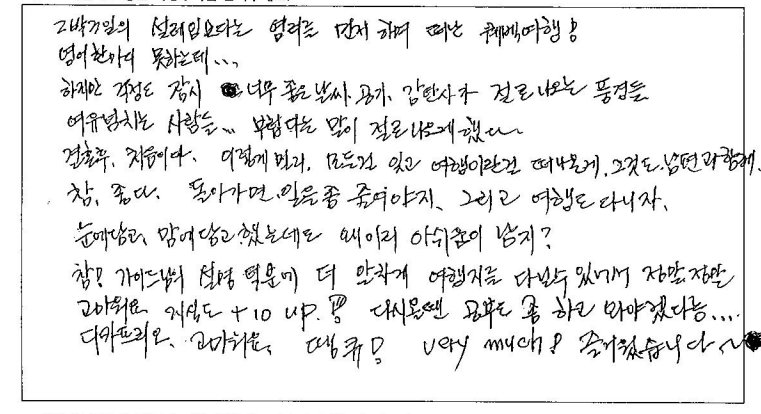 2박3일의 설레임보다는 염려를 먼저 하며 떠난 퀘벡여행!
영어한마디 못하는데...,
하지만 걱정도 잠시 너무 좋은 날씨, 공기, 감탄사가 절로나오는 풍경들
여유넘치는 사람들... 부럽다는 말이 절로나오게 했다~
결혼후, 처음이다. 이렇게 멀리, 모든걸 잊고 여행이란걸 떠나온게, 그것도 남편과 함께.
참, 좋다. 돌아가면, 일을 좀 줄여야지, 그리고 여행도 다니자.
눈에담고, 맘에담고 했는데도 왜이리 아쉬움이 남지?
참! 가이드님의 설명 덕분에 더 알차게 여행지를 다닐수 있어서 정말정말
고마워요 지식도 +10 up.!! 다시올땐 공부도 좀 하고 와야겠다능....
디카프리오, 고마워요, 땡큐! very much! 즐거웠습니다~~